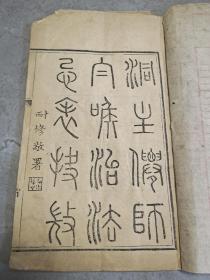 洞主僊師
白喉治法
忌表抉微
耐修敬署